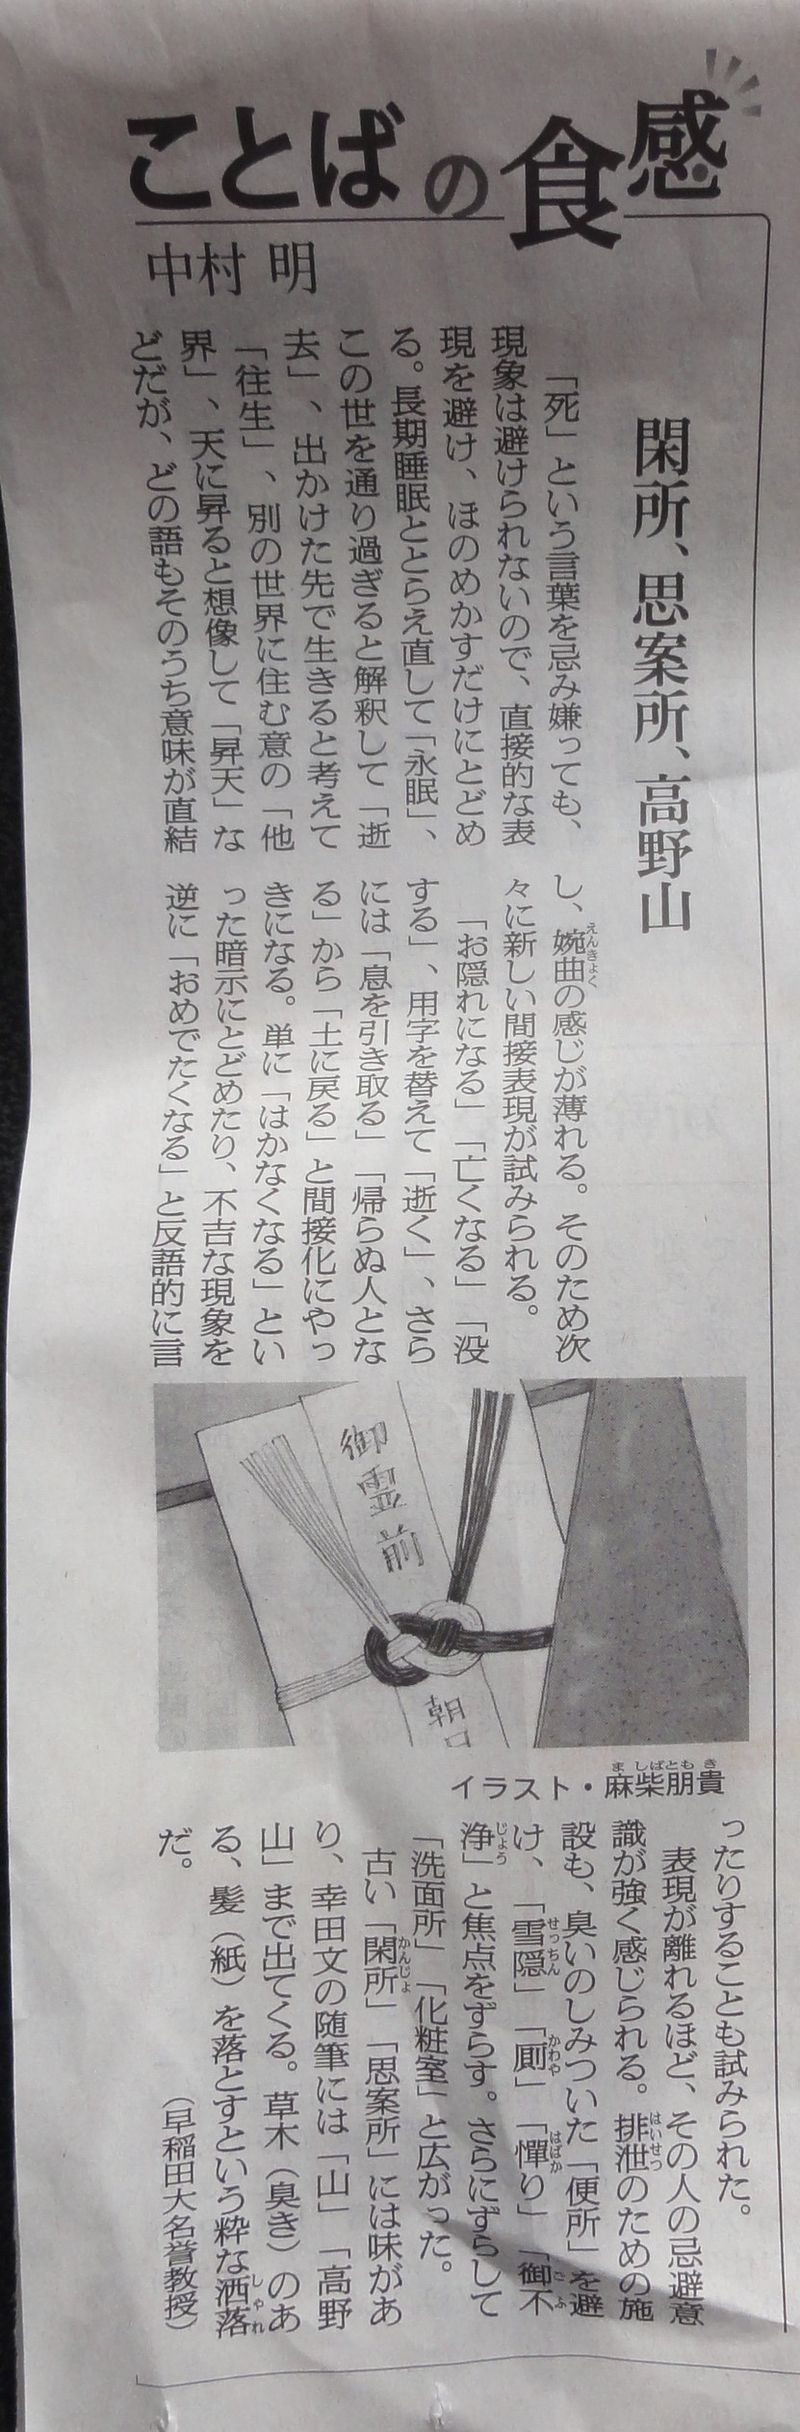 ことばの食感
中村 明
閑所、思案所、高野山
「死」という言葉を忌み嫌っても、
現象は避けられないので、直接的な表
現を避け、ほのめかすだけにとどめ
る。長期睡眠ととらえ直して「永眠」、
この世を通り過ぎると解釈して「逝
去」、出かけた先で生きると考えて
「往生」、別の世界に住む意の「他
界」、天に昇ると想像して「昇天」な
どだが、どの語もそのうち意味が直結
し、婉曲の感じが薄れる。そのため次
えんきょく
々に新しい間接表現が試みられる。
「お隠れになる」「亡くなる」「没
する」、用字を替えて「逝く」、さら
には「息を引き取る」「帰らぬ人とな
る」から「土に戻る」と間接化にやっ
きになる。単に「はかなくなる」とい
った暗示にとどめたり、不吉な現象を
逆に「おめでたくなる」と反語的に言
御霊前
朝日
イラスト・麻柴朋貴
ましばともき
ったりすることも試みられた。
表現が離れるほど、その人の忌避意
識が強く感じられる。排泄のための施
はいせつ
設も、臭いのしみついた「便所」を避
け、「雪隠」「厠」「憚り」「御不
せっちん かわや はばか ごふ
浄」と焦点をずらす。さらにずらして
じょう
「洗面所」「化粧室」と広がった。
古い「閑所」「思案所」には味があ
かんじょ
り、幸田文の随筆には「山」「高野
山」まで出てくる。草木（臭き）のあ
る、髪（紙）を落とすという粋な洒落
しゃれ
だ。
（早稲田大名誉教授）